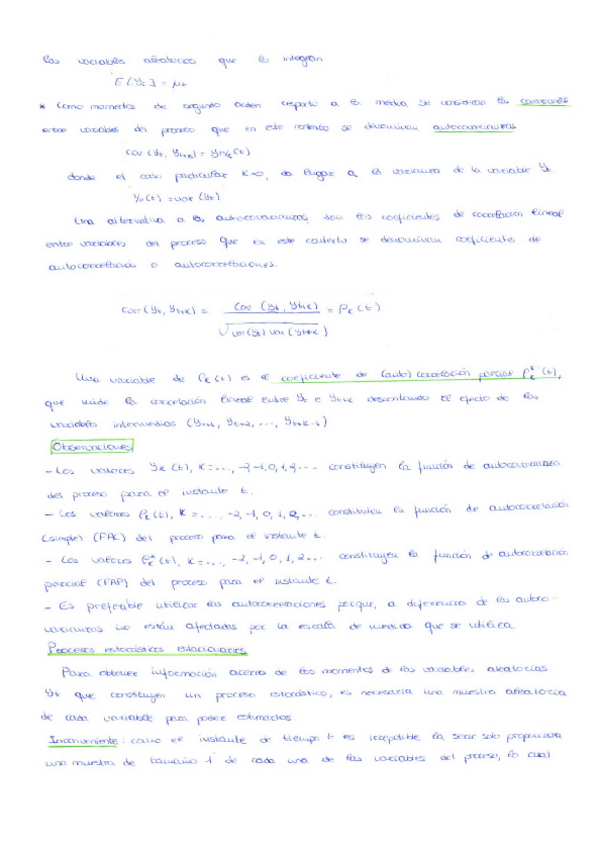 las variables aleatorias que lo integran
E[Yt] = μt
* Como momentos de segundo orden respecto a la media se consideran las covarianzas
entre variables del proceso que en este contexto se denominan autocovarianzas
cov (yt, yt+k) = γk (t)
donde el caso particular k=0, da lugar a la varianza de la variable Yt
γ0(t) = var (yt)
Una alternativa a las autocovarianzas son los coeficientes de correlación lineal
entre variables del proceso que en este contexto se denominan coeficientes de
autocorrelación o autocorrelaciones.
Corr (yt, yt+k) = Cov (yt, yt+k) / √var(yt) var (yt+k) = ρk (t)
Una variable de ρk(t) es el coeficiente de (auto) correlación parcial ρ*k (t),
que mide la correlación lineal entre yt e yt+k descontando el efecto de las
variables intermedias (yt+1, yt+2, ..., yt+k-1)
Observaciones
- Los valores γk (t), k = ..., -2, -1, 0, 1, 2, ... constituyen la función de autocovarianza
del proceso para el instante t.
- Los valores ρk (t), k = ..., -2, -1, 0, 1, 2, ... constituyen la función de autocorrelación
(simple) (FAC) del proceso para el instante t.
- Los valores ρ*k (t), k = ..., -2, -1, 0, 1, 2 ... constituyen la función d autocorrelación
parcial (FAP) del proceso para el instante t.
- Es preferible utilizar las autocorrelaciones porque, a diferencia de las autoco-
varianzas no están afectadas por la escala de medida que se utiliza
Procesos estocásticos estacionarios
Para obtener información acerca de los momentos de las variables aleatorias
Yt que constituyen un proceso estocástico, es necesaria una muestra aleatoria
de cada variable para poder estimarlos
Inconveniente: como el instante de tiempo t es irrepetible la serie solo proporciona
una muestra de tamaño 1 de cada una de las variables del proceso, lo cual